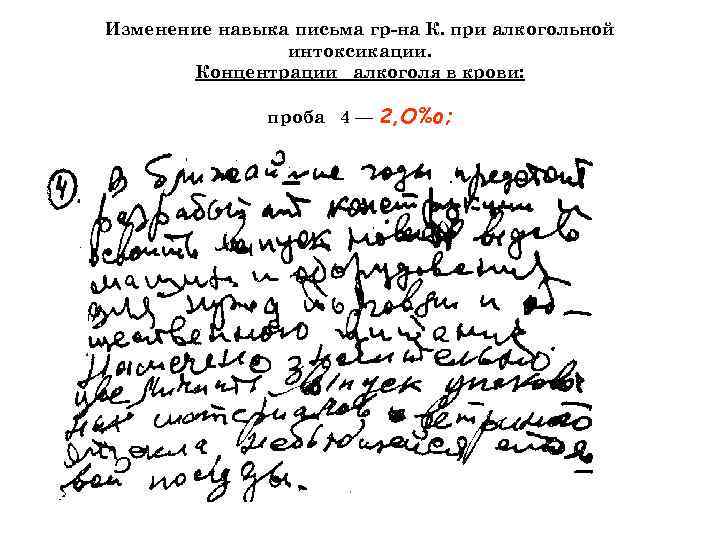 Изменение навыка письма гр-на К. при алкогольной
интоксикации.
Концентрации алкоголя в крови:
проба 4 — 2,0%о;
4 В ближайшие годы предстоит
разработать конструкции и
освоить выпуск новых видов
машин и оборудования
для нужд торговли и об-
щественного питания.
Намечено значительно
увеличить выпуск упаковоч
ных материалов, ветринного
стекла, небьющейся столо
вой посуды.